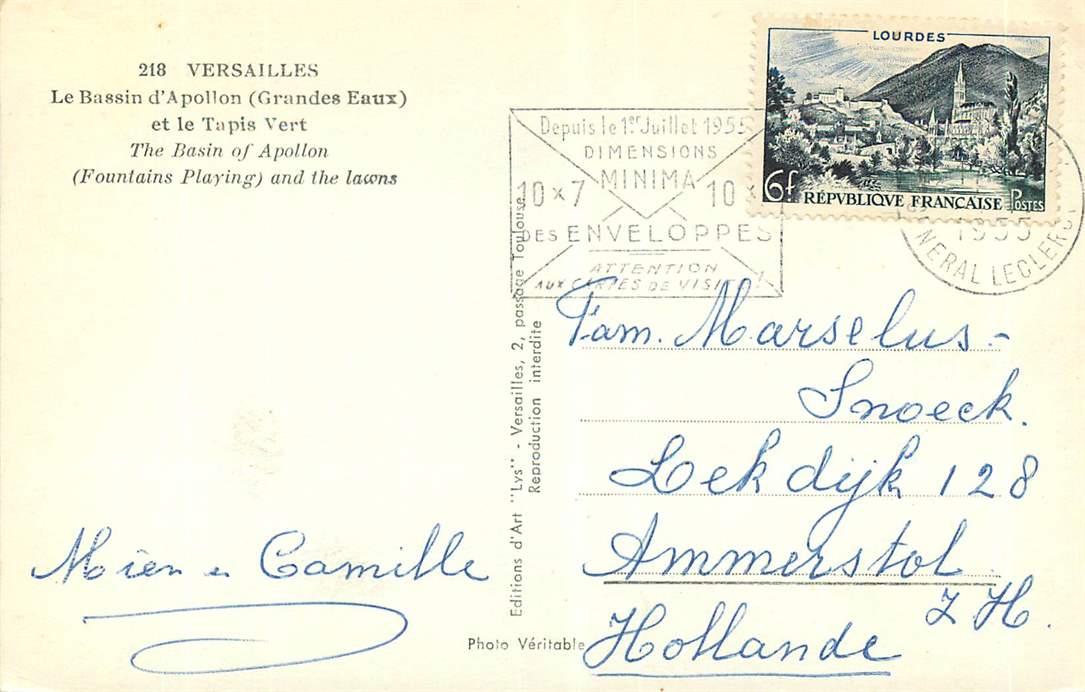 218 VERSAILLES
Le Bassin d'Apollon (Grandes Eaux)
et le Tapis Vert
The Basin of Apollon
(Fountains Playing) and the lawns
LOURDES
6f RÉPVBLIQUE FRANÇAISE POSTES
Depuis le 1er Juillet 1955
DIMENSIONS
MINIMA
10 x 7 10 x
DES ENVELOPPES
ATTENTION
AUX CARTES DE VISITE!
1955
NERAL LECLERC
Editions d'Art "Lys" - Versailles, 2, passage Toulouse
Reproduction interdite
Fam. Marselus-
Snoeck.
Lekdijk 128
Ammerstol
Z.H.
Hollande
Mien en Camille
Photo Véritable